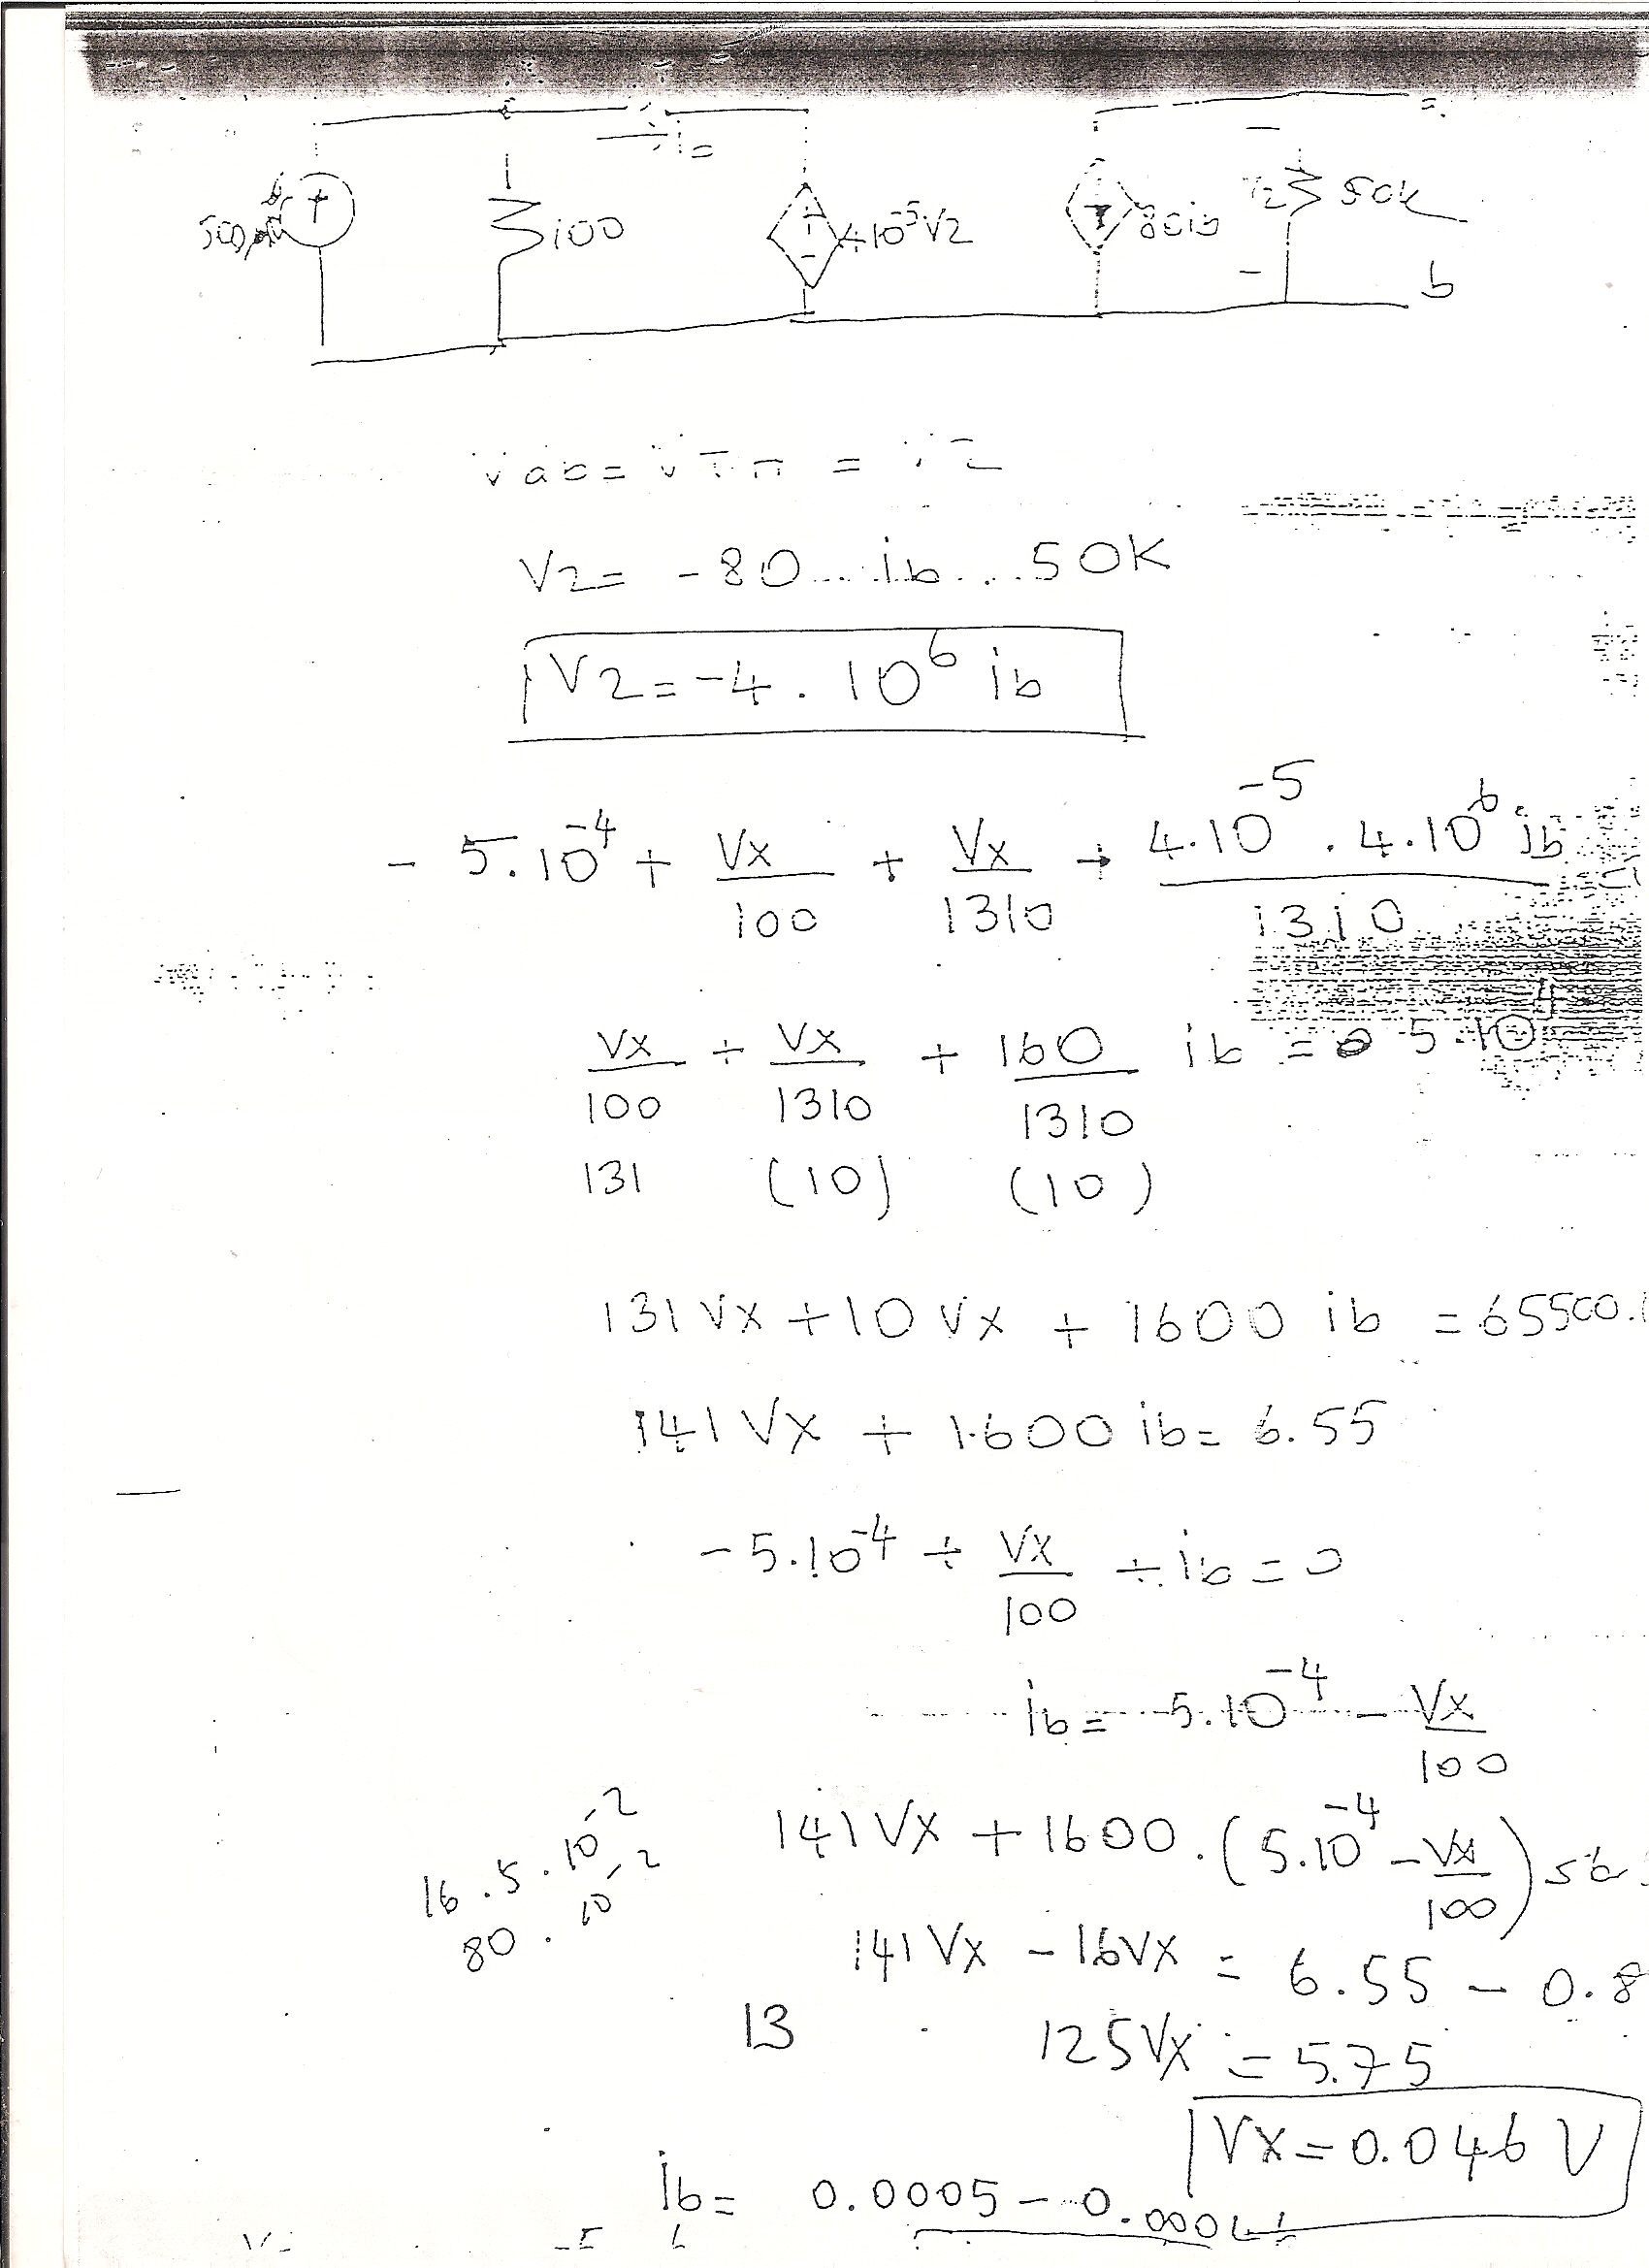 100
4 10⁻⁵ V2
80ib
50k
b
Vab = VTH = V2
V2 = -80 . ib . 50K
V2 = -4 . 10⁶ ib
- 5.10⁻⁴ + Vx/100 + Vx/1310 + 4.10⁻⁵ . 4.10⁶ ib/1310
Vx/100 + Vx/1310 + 160/1310 ib = 5.10⁻⁴
131 (10) (10)
131 Vx + 10 Vx + 1600 ib = 65500.
141 Vx + 1600 ib = 6.55
- 5.10⁻⁴ + Vx/100 + ib = 0
ib = 5.10⁻⁴ - Vx/100
141 Vx + 1600 . (5.10⁻⁴ - Vx/100)
16 . 5 . 10⁻²
80 . 10⁻²
141 Vx - 16Vx = 6.55 - 0.8
13
125Vx = 5.75
Vx = 0.046 V
ib = 0.0005 -